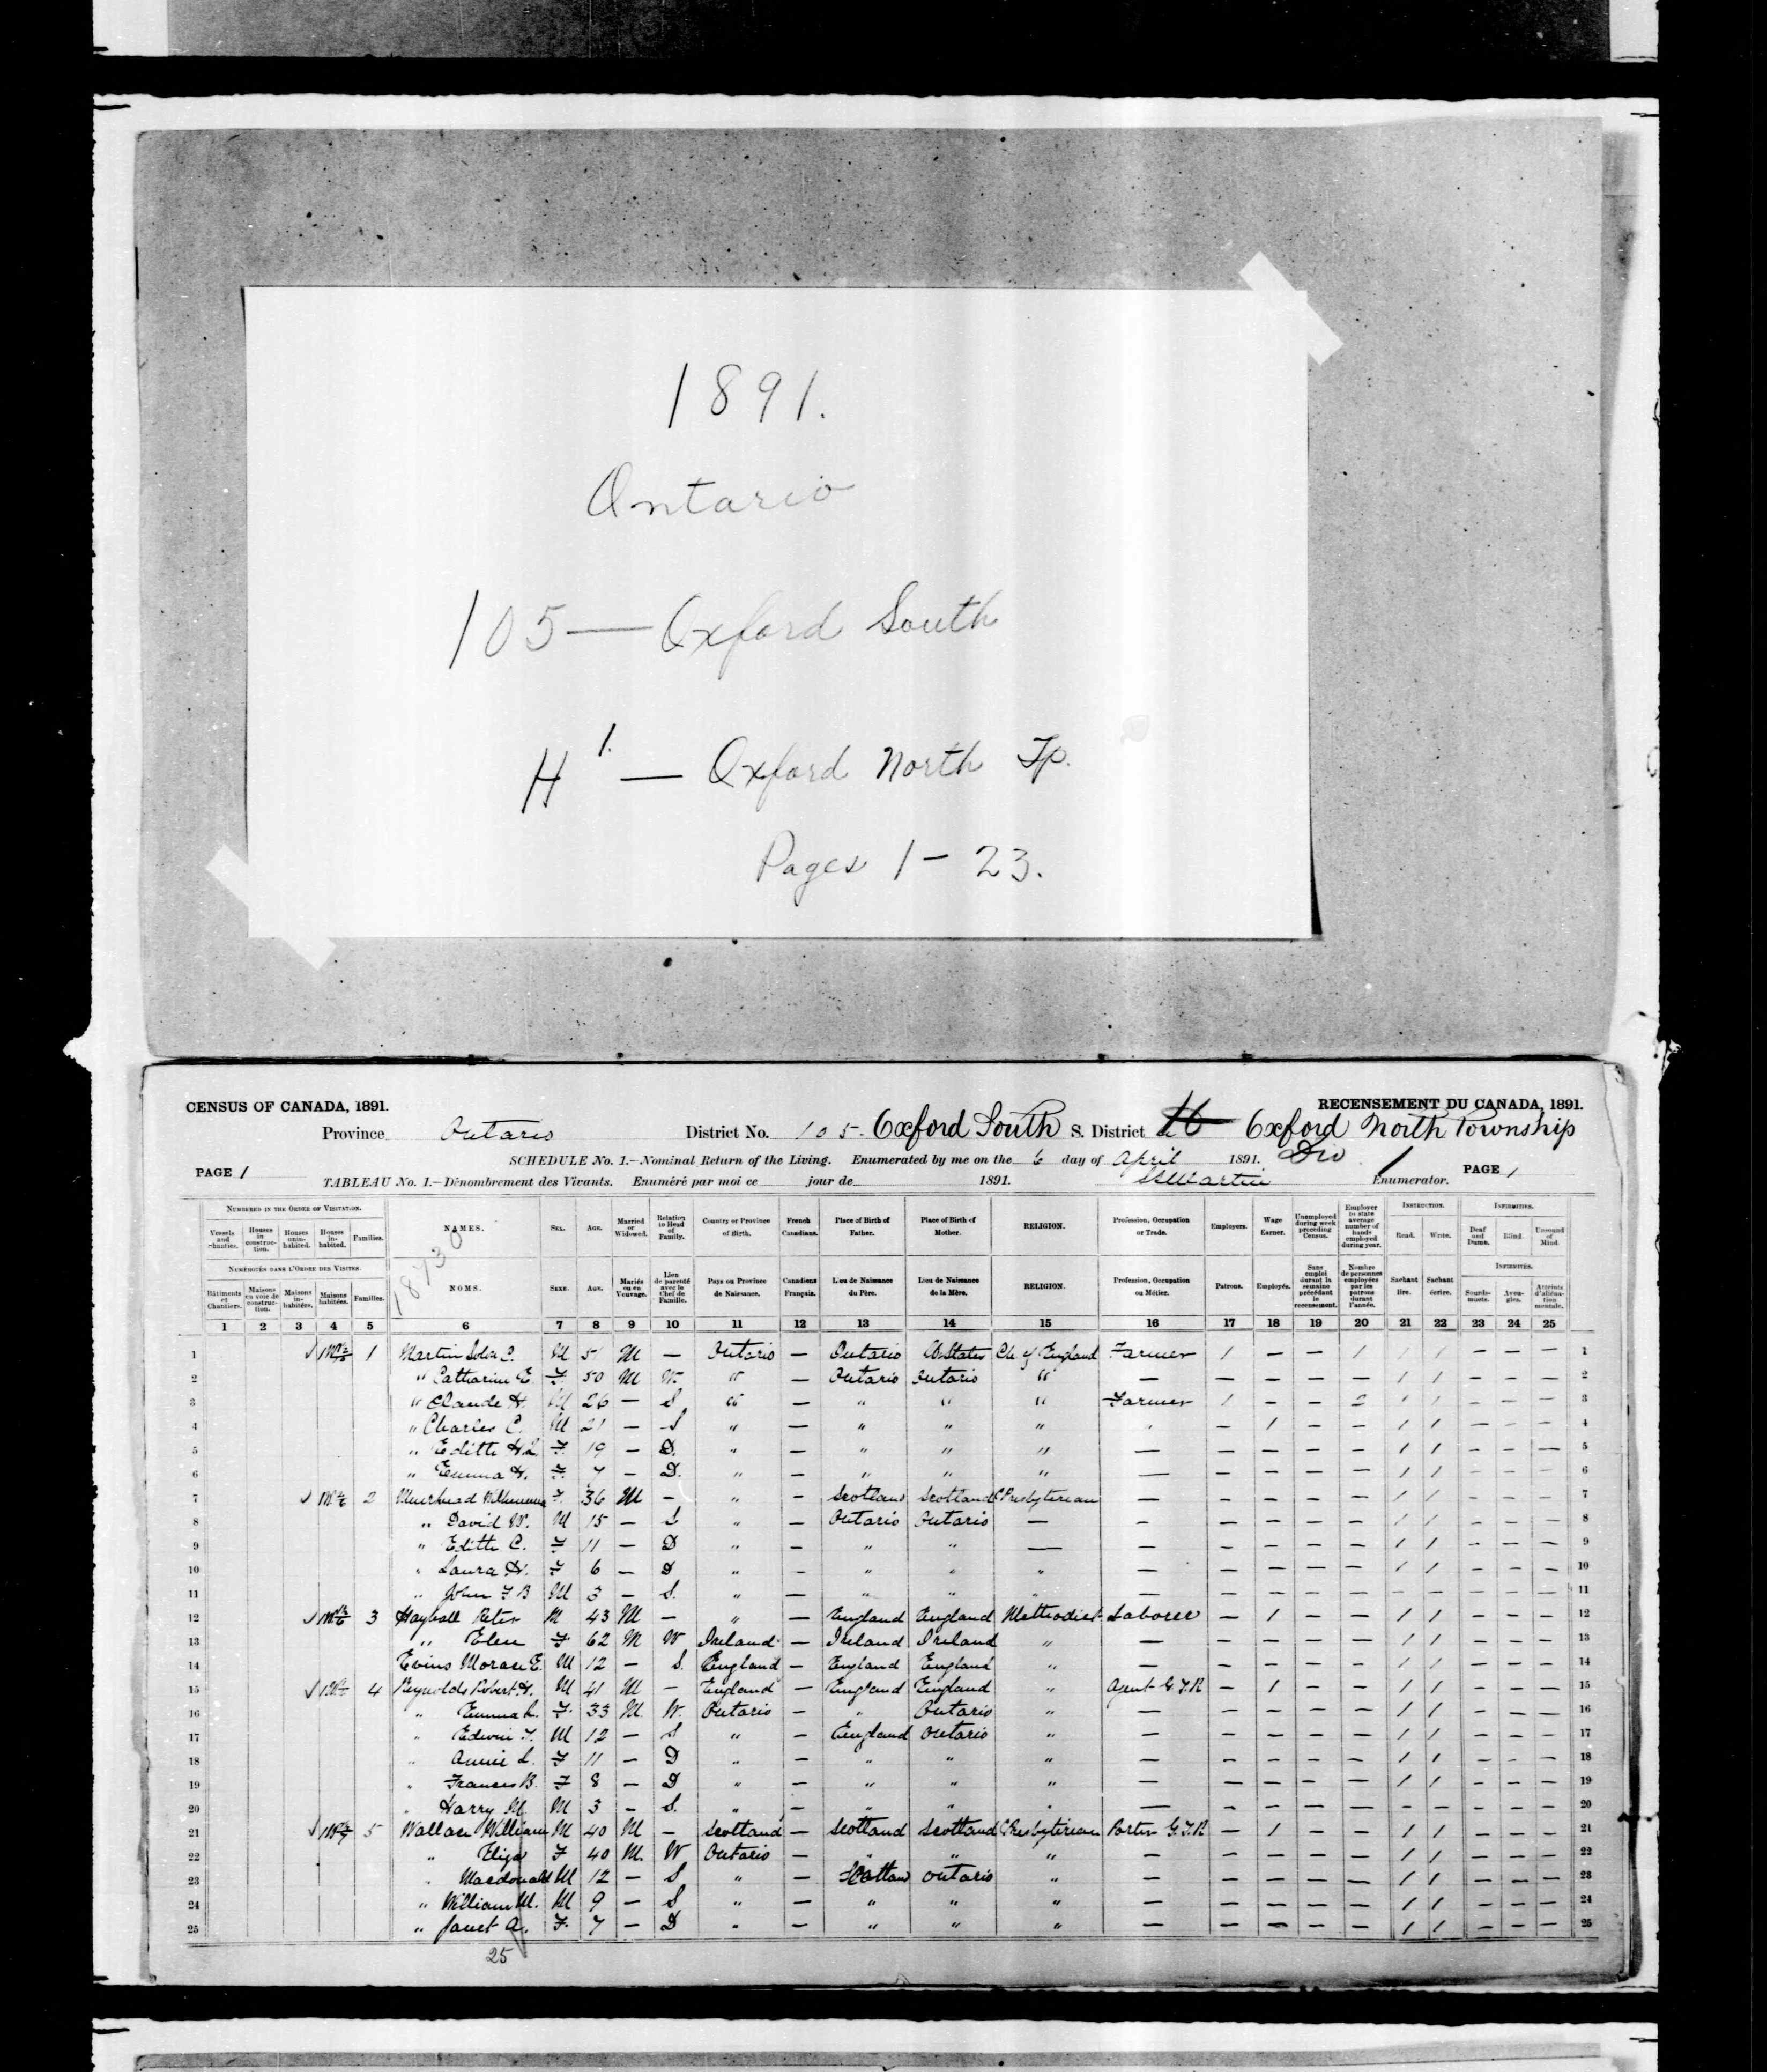 1891.
Ontario
105 — Oxford South
H 1. — Oxford North Tp.
Pages 1 - 23.
CENSUS OF CANADA, 1891. RECENSEMENT DU CANADA, 1891.
Province Ontario District No. 105. Oxford South S. District Oxford North Township
SCHEDULE No. 1.—Nominal Return of the Living. Enumerated by me on the 6 day of April 1891. Div 1
PAGE 1 TABLEAU No. 1.—Dénombrement des Vivants. Enuméré par moi ce jour de 1891. Martin Enumerator. PAGE 1
NUMBERED IN THE ORDER OF VISITATION. NAMES. SEX. AGE. Married or Widowed. Relation to Head of Family. Country or Province of Birth. French Canadians. Place of Birth of Father. Place of Birth of Mother. RELIGION. Profession, Occupation or Trade. Employers. Wage Earner. Unemployed during week preceding Census. Employer to state average number of hands employed during year. INSTRUCTION. INFIRMITIES.
Vessels and Shanties. Houses in construction. Houses uninhabited. Houses inhabited. Families. Read. Write. Deaf and Dumb. Blind. Unsound of Mind.
NUMÉROTÉS DANS L'ORDRE DES VISITES. NOMS. SEXE. AGE. Mariés ou en Veuvage. Lien de parenté avec le Chef de Famille. Pays ou Province de Naissance. Canadiens Français. Lieu de Naissance du Père. Lieu de Naissance de la Mère. RELIGION. Profession, Occupation ou Métier. Patrons. Employés. Sans emploi durant la semaine précédant le recensement. Nombre de personnes employées par les patrons durant l'année. INFIRMITÉS.
Bâtiments et Chantiers. Maisons en voie de construction. Maisons inhabitées. Maisons habitées. Familles. Sachant lire. Sachant écrire. Sourds-muets. Aveugles. Atteints d'aliénation mentale.
1 2 3 4 5 6 7 8 9 10 11 12 13 14 15 16 17 18 19 20 21 22 23 24 25
1 1 Martin M 51 M — Ontario — Ontario U States Ch of England Farmer 1 — — 1 1 1 — — — 1
2 " Catharine E. F 50 M W. " — Ontario Ontario " — — — — — 1 1 — — — 2
3 " Claude H. M 26 — S " — " " " Farmer 1 — — 2 1 1 — — — 3
4 " Charles C. M 21 — S " — " " " " — 1 — — 1 1 — — — 4
5 " Edith H.L. F. 19 — D. " — " " " — — — — — 1 1 — — — 5
6 " Emma H. F. 7 — D. " — " " " — — — — — 1 1 — — — 6
7 2 Muirhead Wilhemina F. 36 M — " — Scotland Scotland C Presbyterian — — — — — 1 1 — — — 7
8 " David W. M 15 — S " — Ontario Ontario — — — — — — 1 1 — — — 8
9 " Edith C. F 11 — D " — " " — — — — — — 1 1 — — — 9
10 " Laura H. F 6 — D " — " " " — — — — — 1 1 — — — 10
11 " John F B M 3 — S. " — " " " — — — — — — — — — — 11
12 3 Hayball Peter M 43 M — " — England England Methodist Laborer — 1 — — 1 1 — — — 12
13 " Elen F 62 M W Ireland — Ireland Ireland " — — — — — 1 1 — — — 13
14 Evins Morace E. M 12 — S. England — England England " — — — — — 1 1 — — — 14
15 4 Reynolds Robert H. M 41 M — England — England England " Agent G.T.R — 1 — — 1 1 — — — 15
16 " Emma L. F. 33 M. W. Ontario — " Ontario " — — — — — 1 1 — — — 16
17 " Edwin F. M 12 — S " — England Ontario " — — — — — 1 1 — — — 17
18 " Annie L. F 11 — D " — " " " — — — — — 1 1 — — — 18
19 " Frances B. F 8 — D " — " " " — — — — — 1 1 — — — 19
20 " Harry M. M 3 — S. " — " " " — — — — — — — — — — 20
21 5 Wallace William M 40 M — Scotland — Scotland Scotland C Presbyterian Porter G.T.R — 1 — — 1 1 — — — 21
22 " Eliza F 40 M. W Ontario — " " " — — — — — 1 1 — — — 22
23 " Macdonald M 12 — S " — Scotland Ontario " — — — — — 1 1 — — — 23
24 " William M. M 9 — S " — " " " — — — — — 1 1 — — — 24
25 " Janet A. F. 7 — D " — " " " — — — — — 1 1 — — — 25
25